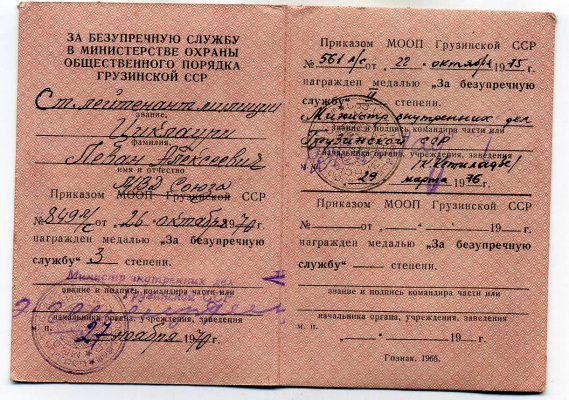 ЗА БЕЗУПРЕЧНУЮ СЛУЖБУ
В МИНИСТЕРСТВЕ ОХРАНЫ
ОБЩЕСТВЕННОГО ПОРЯДКА
ГРУЗИНСКОЙ ССР
Ст. лейтенант милиции
звание,
Циклаури
фамилия,
Леван Алексеевич
имя и отчество
МВД Союза
Приказом МООП Грузинской ССР
№ 849 л/с от „26 октября 1970 г.
награжден медалью „За безупречную
службу“ 3 степени.
Министр внутренних дел
Грузинской
звание и подпись командира части или
начальника органа, учреждения, заведения
м. п. „27 ноября 1970 г.
Приказом МООП Грузинской ССР
№ 561 л/с от „22 октября 1975 г.
награжден медалью „За безупречную
службу“ II степени.
Министр внутренних дел
звание и подпись командира части или
Грузинской ССР
начальника органа, учреждения, заведения
/К. Кетиладзе/
„29 марта 1976 г.
Приказом МООП Грузинской ССР
№ от „ “ 19 г.
награжден медалью „За безупречную
службу“ степени.
звание и подпись командира части или
начальника органа, учреждения, заведения
м. п. „ “ 19 г.
Гознак. 1966.